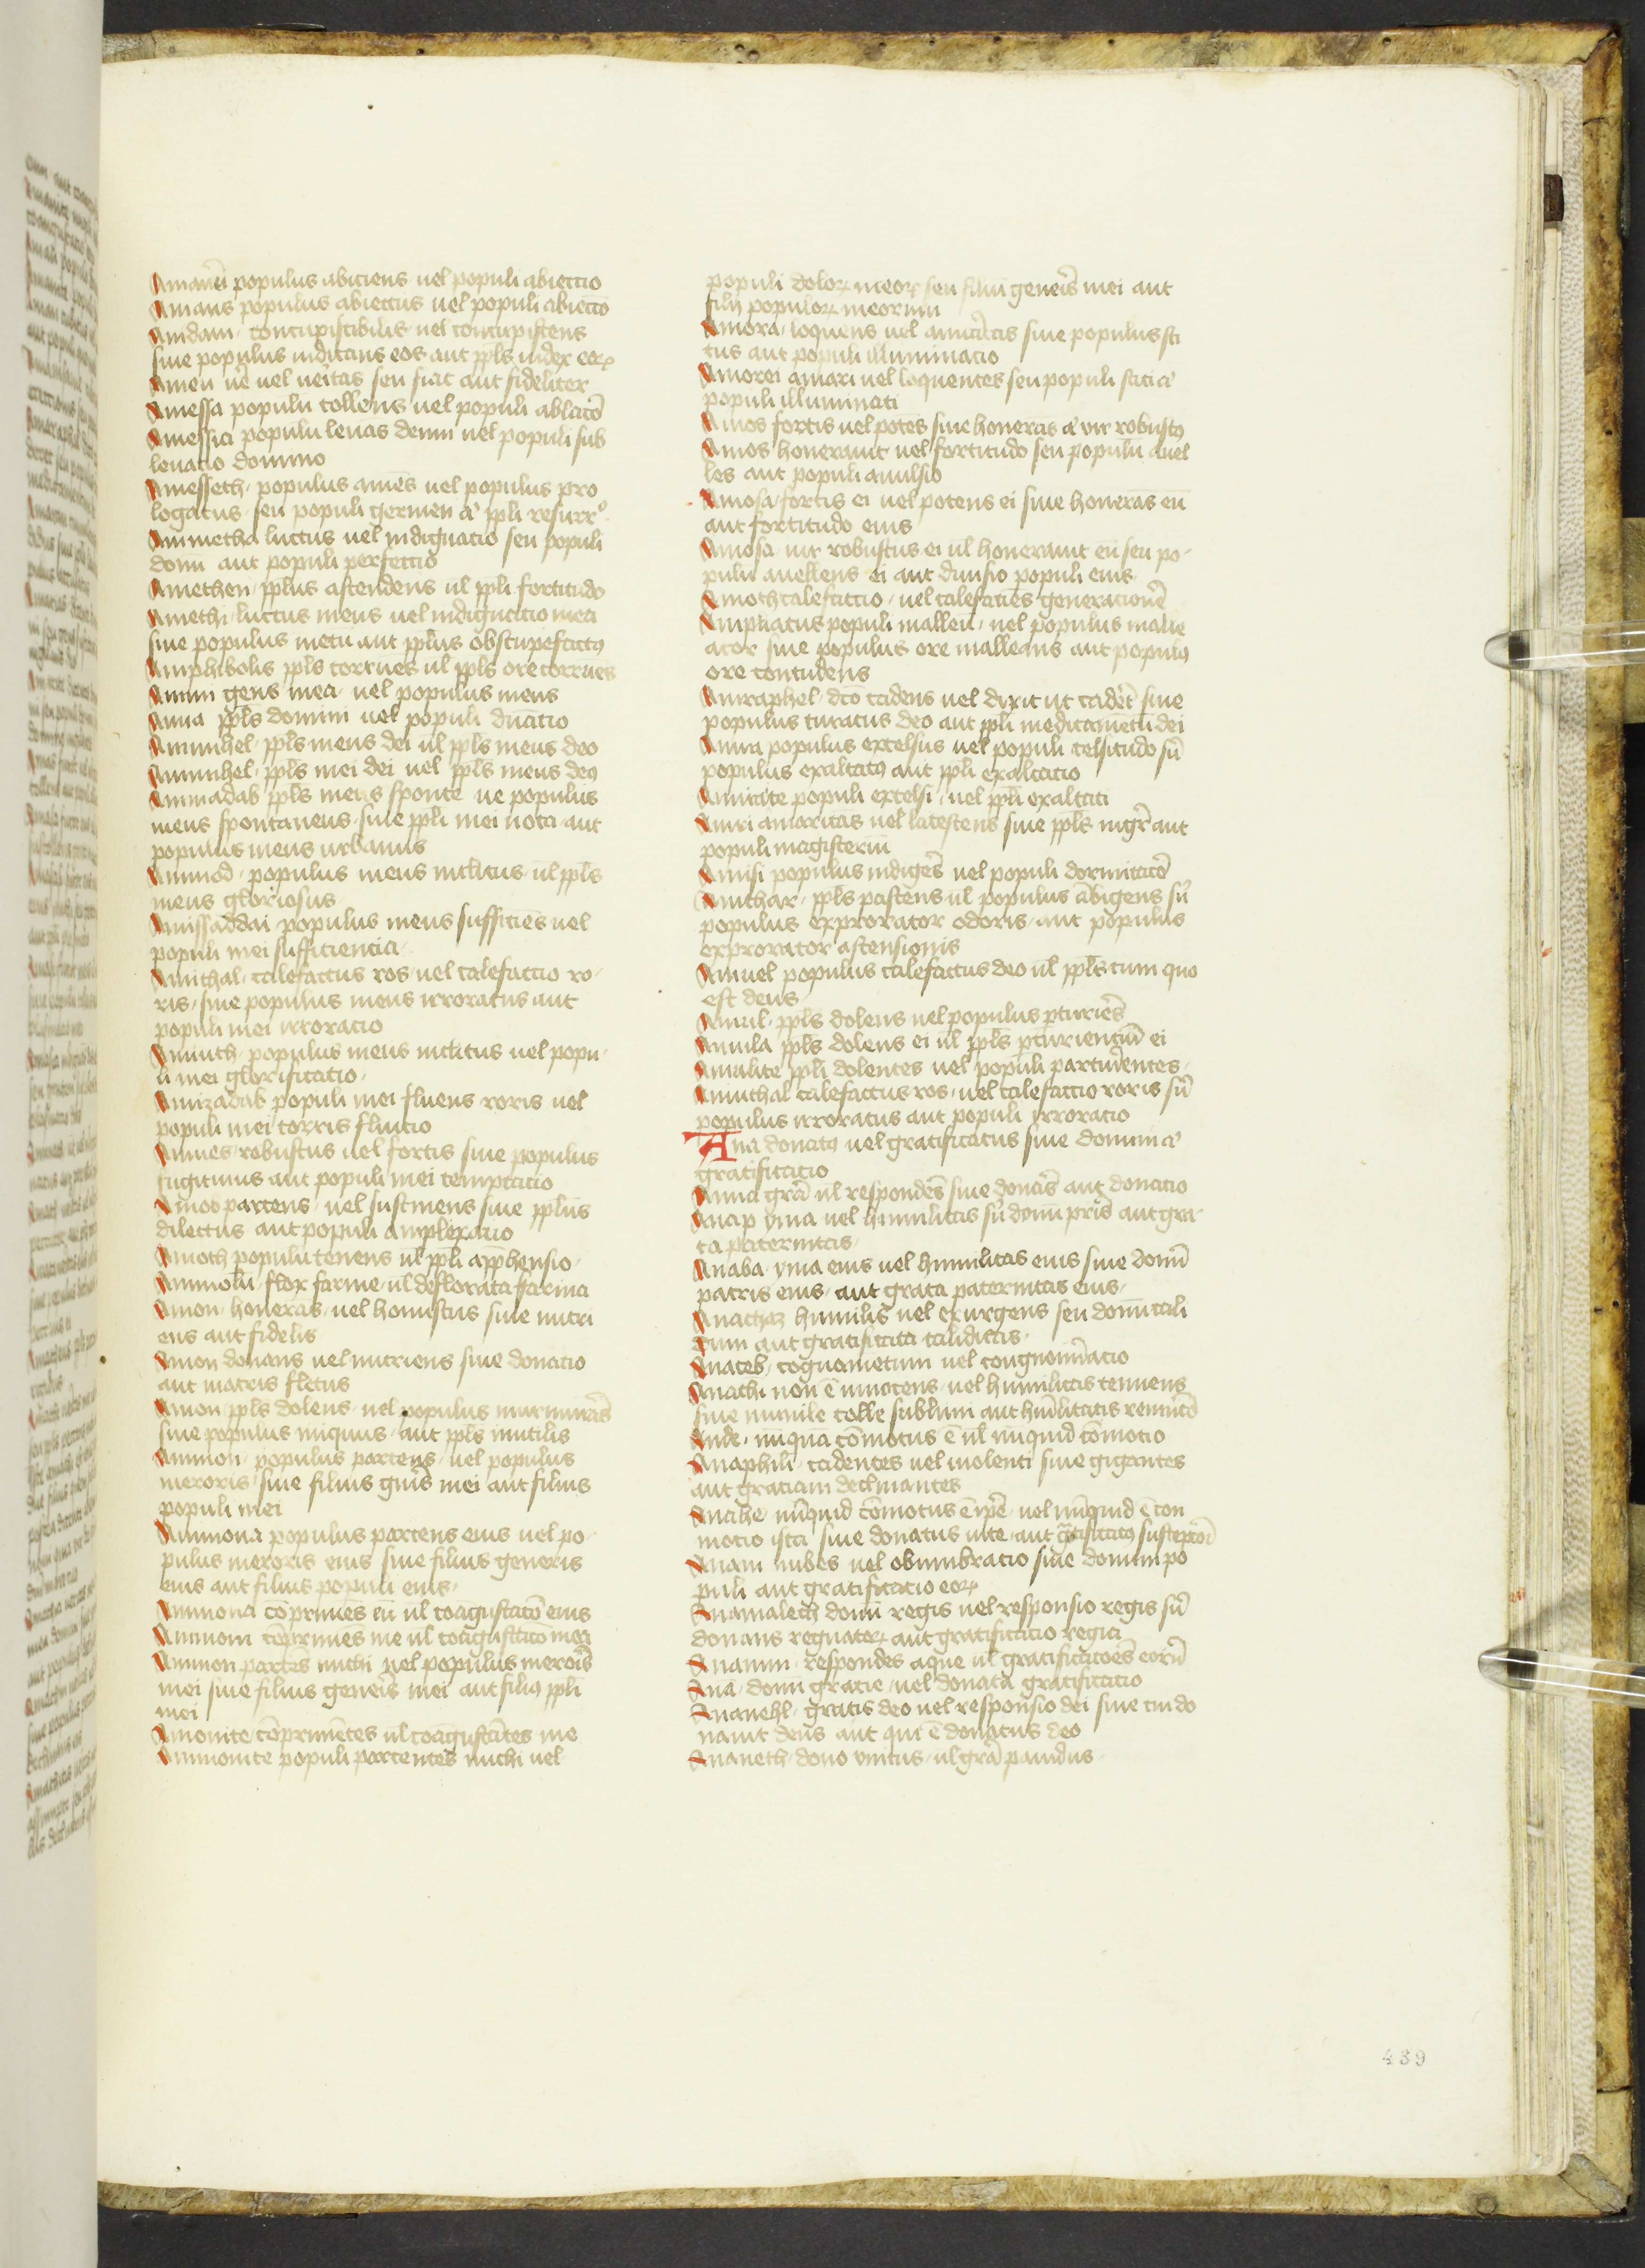 Amanei populus abiciens uel populi abiectio
Amans populus abiectus uel populi abiectō
Amdam, concupiscibilis uel concupiscens
siue populus iudicans eos aut ppls iudex eoꝝ
Amen ue uel ueritas seu fiat aut fideliter
Amessa populū tollens uel populi ablatō
Amessia populū leuās domi uel populi sub
leuatio domino
Amesseth, populus amēs uel populus pro
logatus seu populi germen a ppli resurr
Ammetha luctus uel indignatio seu populi
domū aut populi perfectio
Amethen, pplus ascendens ul ppli fortitudo
Amethi, luctus meus uel indignatio mea
siue populus metu aut pplus obstupefactꝰ
Amphibolis ppls corruēs ul ppls ore corruēs
Amim gens mea, uel populus meus
Amia ppls domini uel populi dnatio
Amiuhel, ppls meus dei ul ppls meus deo
Amiuhel, ppls mei dei uel ppls meus deꝰ
Aminadab ppls meus sponte ue populus
meus spontaneus siue ppli mei uota aut
populus meus urbanus
Amiud, populus meus inclitus ul ppls
meus gloriosus
Amissaddai populus meus sufficiēs uel
populi mei sufficiencia
Amithal, calefactus ros uel calefactio ro-
ris, siue populus meus irroratus aut
populi mei irroratio
Amiuth, populus meus inclitus uel popu-
li mei glorificatio,
Amizadab populi mei fluens roris uel
populi mei torris fluitio
Ammes, robustus uel fortis siue populus
fugitiuus aut populi mei temptatio
Amob partens, uel sustinens siue pplus
dilectus aut populi amplexatio
Amoth populū tenens ul ppli appħensio,
Ammolū flox farine ul deflorata farina
Amon, honerās, uel honustus siue nutri
ens aut fidelis,
Amon donans uel nutriens siue donatio
aut matris fletus
Amon ppls dolens, uel populus murmurās
siue populus iniquus aut ppls inutilis
Ammon, populus partens, uel populus
meroris siue filius gnis mei aut filius
populi mei
Ammona populus partens eius uel po-
pulus meroris eius siue filius generis
eius aut filius populi eius,
Ammona cōprimēs eū ul coagustatō eius
Ammoni cōprimēs me ul coagustatō mea
Ammon partēs michi uel populus meroris
mei siue filius generis mei aut filiꝰ ppli
mei
Amonite cōprimētes ul coāgustātes me
Ammonite populi partentes michi uel
populi doloꝝ meoꝝ seu filiū generis mei aut
filij populoꝝ meorum
Amora, loquens uel amicitis siue populus sci
tus aut populi illuminatio
Amorei amari uel loquentes seu populi sciti a
populi illuminati
Amos fortis uel potēs siue honerās a uir robustꝰ
Amos honerauit uel fortitudo seu populū auel
les aut populi auulsio
Amosa, fortis ei uel potens ei siue honerās eū
aut fortitudo eius
Amosa, uir robustus ei ul honerauit eū seu po-
pulū auellens ei aut diuisio populi eius,
Amoth calefactio, uel calefaciēs generationē
Ampliatus populi malleū, uel populus malle
ator siue populus ore malleans aut populꝰ
ore contudens
Amraphel, dcō cadens uel dixit ut cadēt siue
populus curatus deo aut ppli medicamētū dei
Amra populus excelsus uel populi celsitudo sū
populus exaltatꝰ aut ppli exaltatio
Amitate populi excelsi, uel ppli exaltati
Amri amaritas uel latescens siue ppls mgr aut
populi magisteriū
Amsi populus indigēs uel populi dormitatō
Amthar, ppls pastens ul populus ābigens sū
populus exprorator odoris, aut populus
exprorator ascensionis
Amuel populus calefactus deo ul ppls cum quo
est deus
Amul, ppls dolens uel populus pturiēs
Amula ppls dolens ei ul ppls pturienciū ei
Amulite ppli dolentes uel populi parturientes,
Amuthal calefactus ros, uel calefactio roris sū
populus irroratus aut populi irroratio
Ana donatꝰ uel gratificatus siue donum a
gratificatio
Anna grā ul respondēs siue donās aut donatio
Anap yma uel humilitas sū donū pris aut gra-
ta paternitas,
Anaba, yma eius uel humilitas eius siue donū
patris eius, aut grata paternitas eius,
Anachaz humilis uel exurgens seu donū cali
dum aut gratificata caliditas,
Anaceb, cognometum uel congnomiatio
Anathi non ē innocens, uel humilitas tenuens
siue numile tolle sublimi aut hūilitatis
Ande, nūquā cōmotus ē ul nūquid cōmotio
Anaphili, cadentes uel uiolenti siue gigantes
aut gratiam declinantes
Anathe, nūquid cōmotus ē ipē, uel nūquid ē con
motio ista siue donatus uite, aut grtificatꝰ
Anam nubes uel obumbratio siue donum po
puli aut gratificatio eoꝝ
Anamalech donū regis uel responsio regis sū
donans regnatoꝝ aut gratificatio regia
Anamim, respondes aque ul gratificatoēs eorū
Ana, donū gracie, uel donata gratificatio
Ananehl, gratis deo uel responsio dei siue cui do
nauit deus aut qui ē donatus deo
Ananeth, dono unitus, ul grā pandus,
439